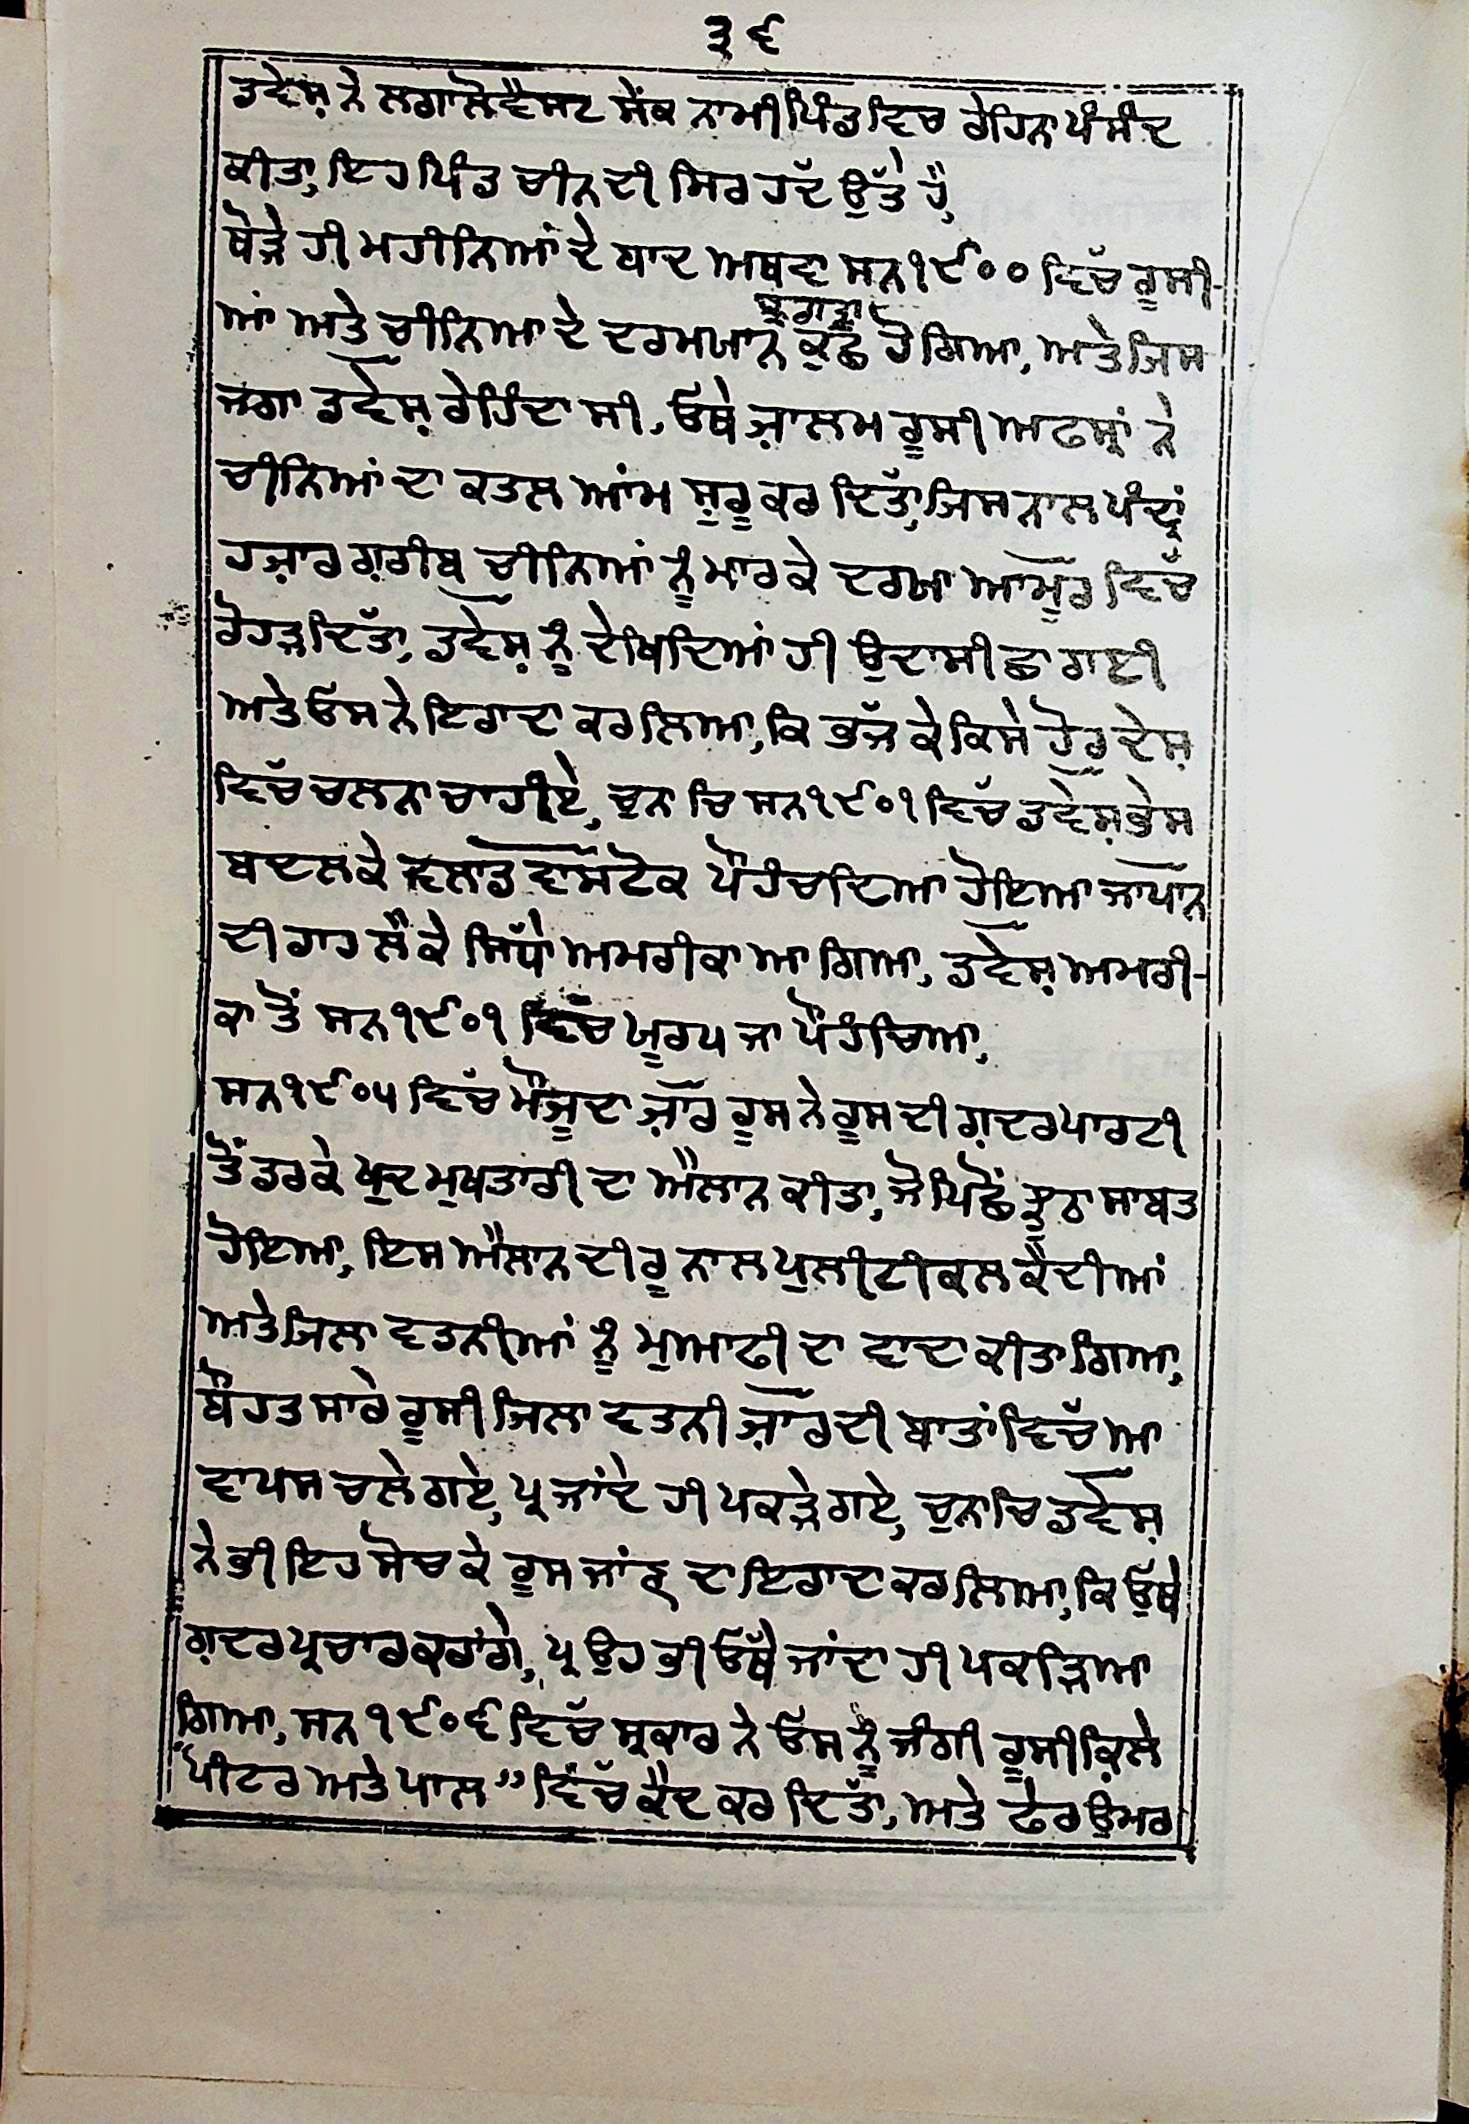 ੩੬
ਡਵੇਸ਼ ਨੇ ਲਗਾਲੋਵੈਸਟ ਸੇਂਕ ਨਾਮੀ ਪਿੰਡ ਵਿਚ ਰੇਹਿਨਾ ਪੰਸੰਦ
ਕੀਤਾ, ਇਹ ਪਿੰਡ ਚੀਨ ਦੀ ਸਿਰ ਹੱਦ ਉੱਤੇ ਹੈ,
ਥੋੜੇ ਹੀ ਮਹੀਨਿਆਂ ਦੇ ਬਾਦ ਅਥਵਾ ਸਨ ੧੯੦੦ ਵਿੱਚ ਰੂਸੀ-
ਝਗੜਾ
ਆਂ ਅਤੇ ਚੀਨਿਆ ਦੇ ਦਰਮਯਾਨ ਕੁਛ ਹੋਗਿਆ, ਅਤੇ ਜਿਸ
ਜਗਾ ਡਵੇਸ਼ ਰੇਹਿੰਦਾ ਸੀ, ਓਥੇ ਜ਼ਾਲਮ ਰੂਸੀ ਅਫਸ੍ਰਾਂ ਨੇ
ਚੀਨਿਆਂ ਦਾ ਕਤਲ ਆਂਮ ਸ਼ੁਰੂ ਕਰ ਦਿੱਤਾ, ਜਿਸ ਨਾਲ ਪੰਦ੍ਰਾਂ
ਹਜ਼ਾਰ ਗ਼ਰੀਬ ਚੀਨਿਆਂ ਨੂੰ ਮਾਰਕੇ ਦਰਯਾ ਆਮੂਰ ਵਿੱਚ
ਰੋਹੜ ਦਿੱਤਾ, ਡਵੇਸ਼ ਨੂੰ ਦੇਖਿਦਿਆਂ ਹੀ ਉਦਾਸੀ ਛਾ ਗਈ
ਅਤੇ ਓਸ ਨੇ ਇਰਾਦਾ ਕਰ ਲਿਆ, ਕਿ ਭੱਜ ਕੇ ਕਿਸੇ ਹੋਰ ਦੇਸ਼
ਵਿੱਚ ਚਲਨਾ ਚਾਹੀਏ, ਚੁਨਾਚਿ ਸਨ ੧੯੦੧ ਵਿੱਚ ਡਵੇਸ਼ ਭੇਸ
ਬਦਲਕੇ ਵਲਾਡ ਵਾਸਟੋਕ ਪੌਹੰਚਦਿਆ ਹੋਇਆ ਜਾਪਾਨ
ਦੀ ਰਾਹ ਲੈ ਕੇ ਸਿੱਧਾ ਅਮਰੀਕਾ ਆ ਗਿਆ, ਡਵੇਸ਼ ਅਮਰੀ-
ਕਾ ਤੋਂ ਸਨ ੧੯੦੧ ਵਿੱਚ ਯੂਰਪ ਜਾ ਪੌਹੰਚਿਆ,
ਸਨ ੧੯੦੫ ਵਿੱਚ ਮੌਜੂਦਾ ਜ਼ਾਰ ਰੂਸ ਨੇ ਰੂਸ ਦੀ ਗ਼ਦਰ ਪਾਰਟੀ
ਤੋਂ ਡਰਕੇ ਖੁਦ ਮੁਖਤਾਰੀ ਦਾ ਐਲਾਨ ਕੀਤਾ, ਜੋ ਪਿਛੋਂ ਝੂਠ ਸਾਬਤ
ਹੋਇਆ, ਇਸ ਐਲਾਨ ਦੀ ਰੂ ਨਾਲ ਪੁਲੀਟੀਕਲ ਕੈਦੀਆਂ
ਅਤੇ ਜਿਲਾ ਵਤਨੀਆਂ ਨੂੰ ਮੁਆਫੀ ਦਾ ਵਾਦਾ ਕੀਤਾ ਗਿਆ,
ਬੌਹਤ ਸਾਰੇ ਰੂਸੀ ਜਿਲਾ ਵਤਨੀ ਜ਼ਾਰ ਦੀ ਬਾਤਾਂ ਵਿੱਚ ਆ
ਵਾਪਸ ਚਲੇ ਗਏ, ਪ੍ਰ ਜਾਂਦੇ ਹੀ ਪਕੜੇ ਗਏ, ਚੁਨਾਚਿ ਡਵੇਸ਼
ਨੇ ਭੀ ਇਹ ਸੋਚ ਕੇ ਰੂਸ ਜਾਂਣ ਦਾ ਇਰਾਦਾ ਕਰ ਲਿਆ, ਕਿ ਓੁਥੇ
ਗ਼ਦਰ ਪ੍ਰਚਾਰ ਕਰਾਂਗੇ, ਪ੍ਰ ਉਹ ਭੀ ਓਥੇ ਜਾਂਦਾ ਹੀ ਪਕੜਿਆ
ਗਿਆ, ਸਨ ੧੯੦੬ ਵਿੱਚ ਸ੍ਰਕਾਰ ਨੇ ਓਸ ਨੂੰ ਜੰਗੀ ਰੂਸੀ ਕਿਲੇ
"ਪੀਟਰ ਅਤੇ ਪਾਲ" ਵਿੱਚ ਕੈਦ ਕਰ ਦਿੱਤਾ, ਅਤੇ ਫੇਰ ਉਮਰ